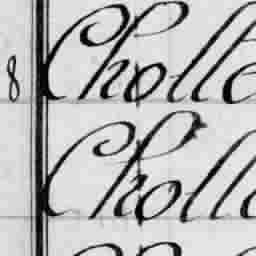 8 Cholle
Cholle